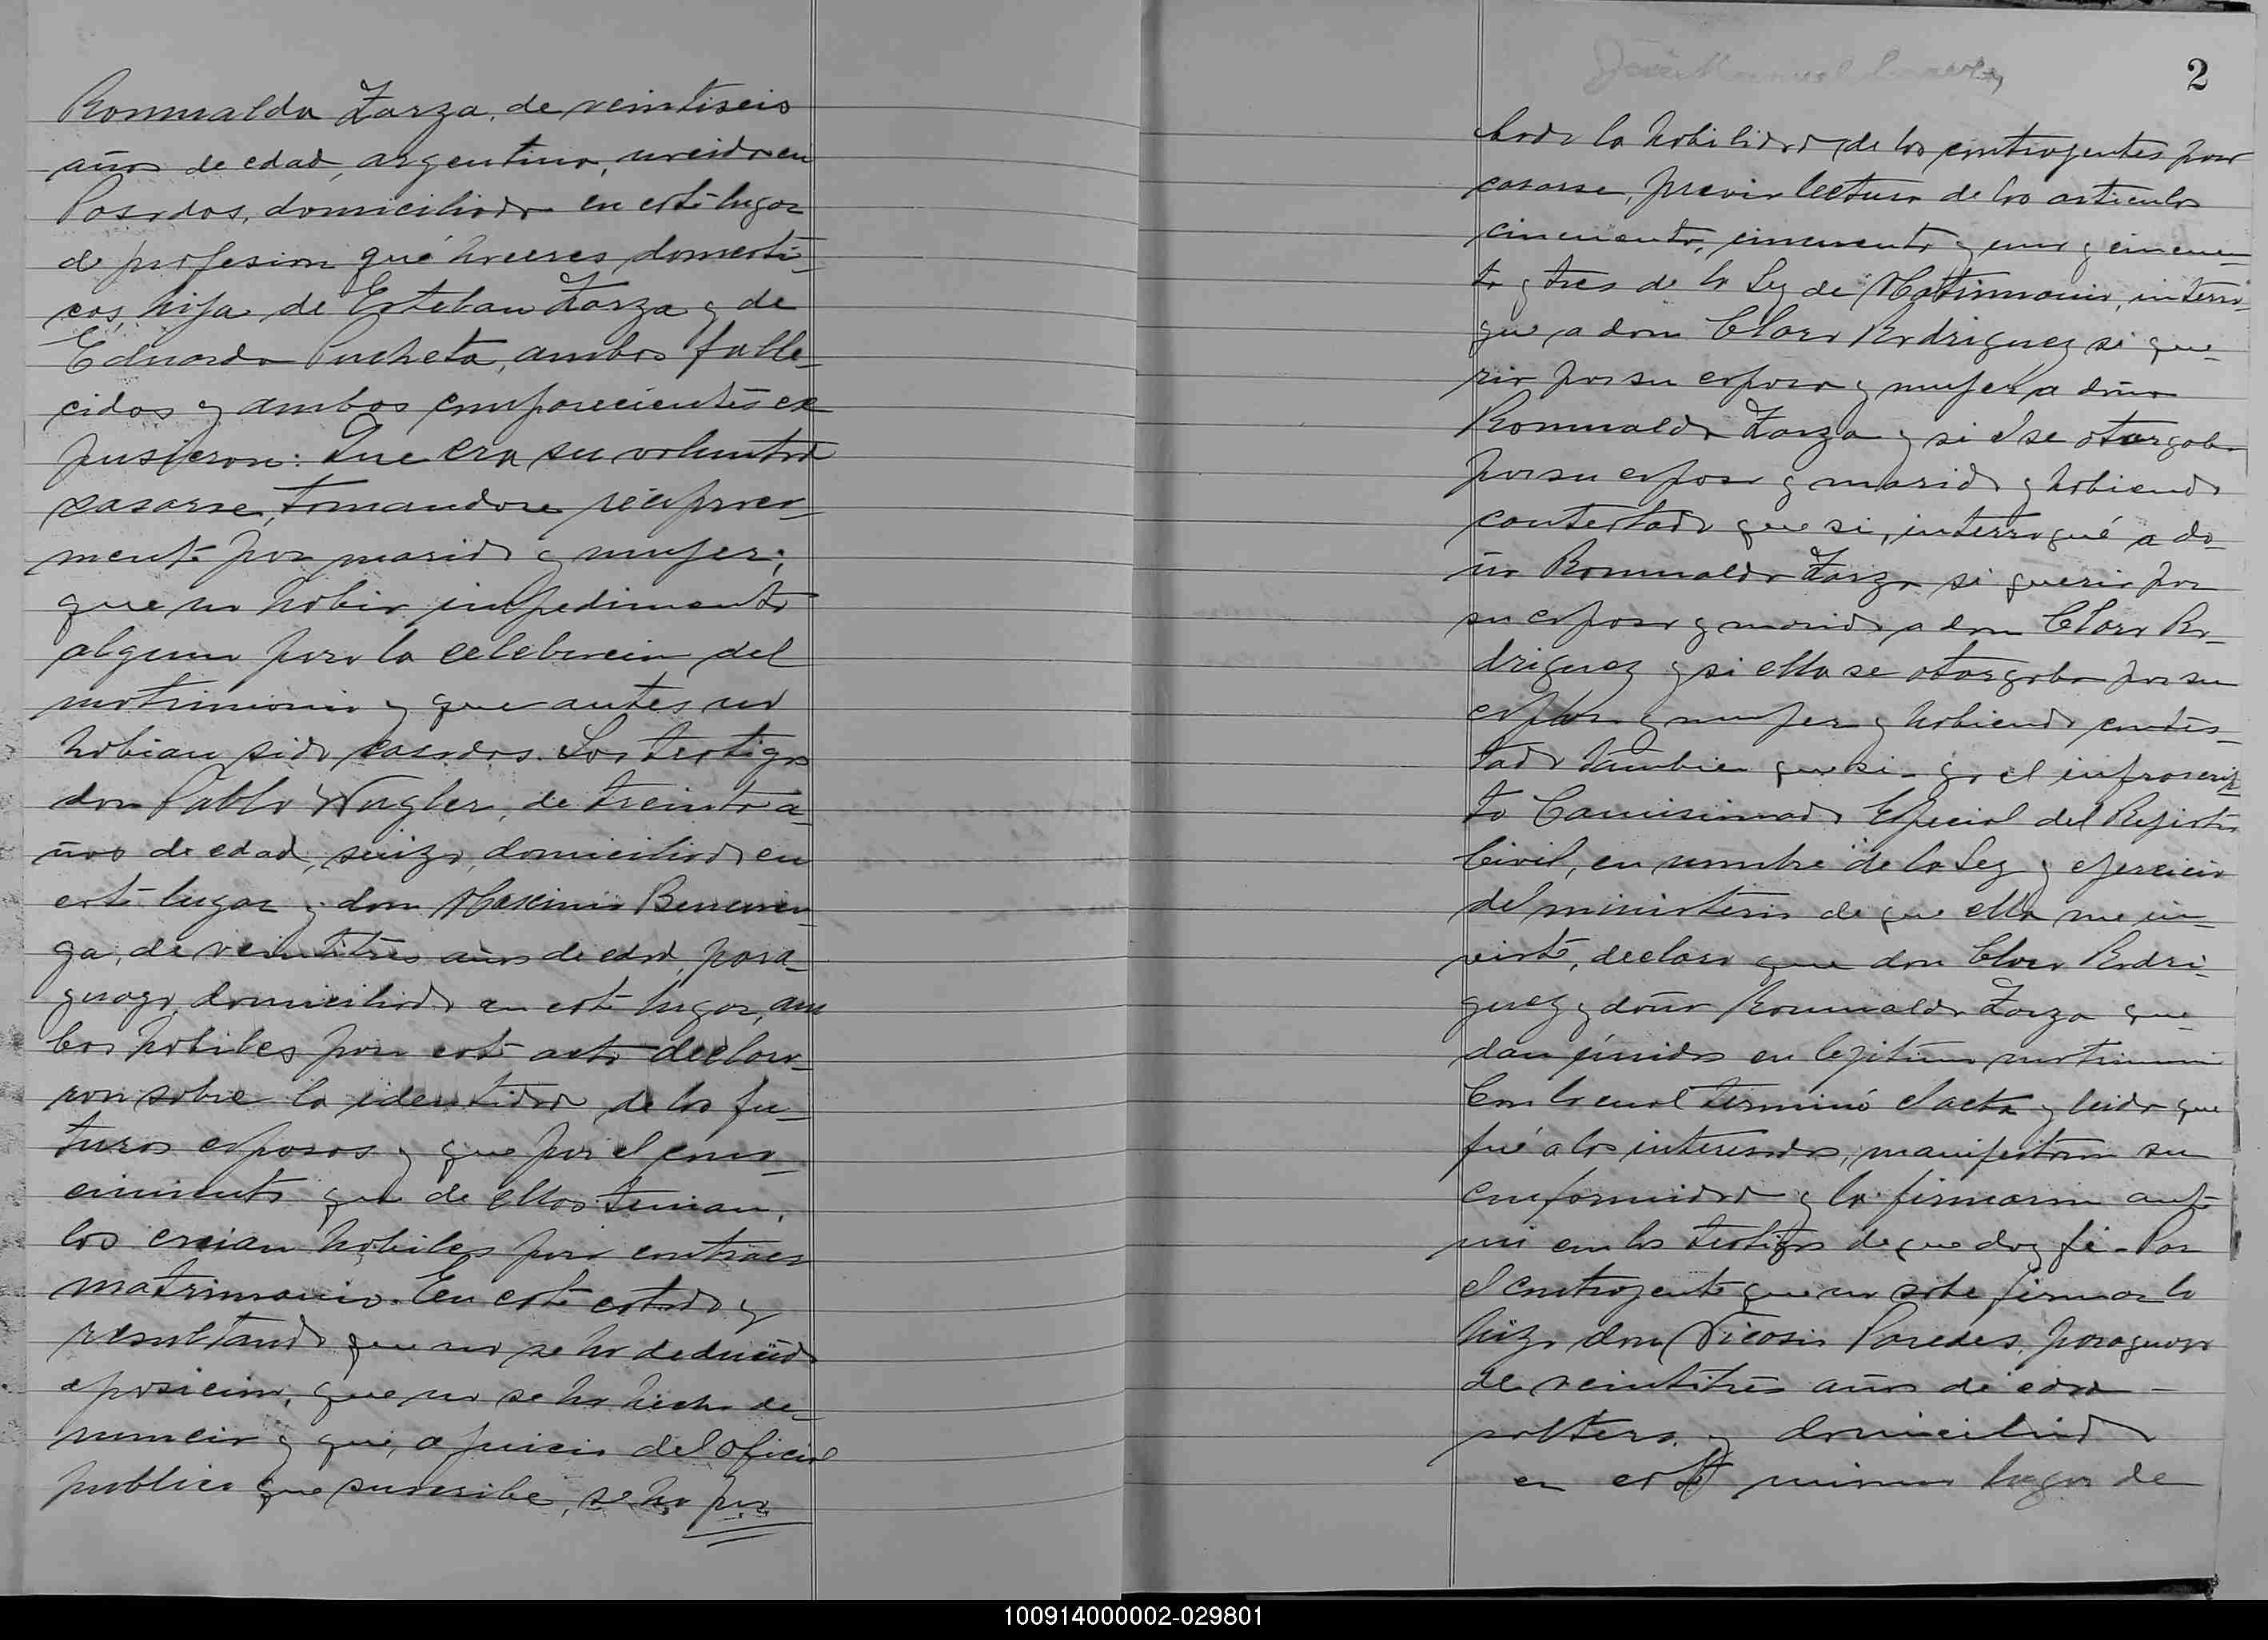 Romualda Zarza, de veintiseis
años de edad, argentina, nacida en
Posadas, domiciliada en este lugar
de profesion qué haceres domesti-
cos, hija de Esteban Zarza y de
Eduarda Pucheta, ambos falle-
cidos y ambos comparecientes ex
pusieron: Que era su voluntad
casarse, tomandose reciproca-
mente por marido y mujer;
que no habia impedimento
alguno para la celebracion del
matrimonio y que antes no
habian sido casados. Los testigos
don Pablo Wugler, de treinta a-
ños de edad, suizo, domiciliado en
este lugar y don Maximio
ga, de veintitres años de edad, para-
guayo, domiciliado en este lugar, am
bos habiles para este acto declara-
ron sobre la identidad de los fu-
turos esposos y que por el cono-
cimiento que de ellos tenian,
los creian habiles para contraer
matrimonio. En este estado y
resultando que no se ha deducido
oposicion, que no se ha hecho de-
nuncia y que, a juicio del oficial
publico que suscribe, se ha pro
2
bado la habilidad de los contrayentes para
casarse, previa lectura de los articulos
cincuenta, cincuenta y uno y cincuen-
ta y tres de la Ley de Matrimonio, interro-
gue a don Claro Rodriguez si que-
ria por su esposa y mujer a doña
Romualda Zarza y si el se otorgaba
por su esposo y marido y habiendo
contestado que si, interrogué a do-
ña Romualda Zarza si queria por
su esposo y marido a don Claro Ro-
driguez y si ella se otorgaba por su
esposa y mujer y habiendo contes-
tado tambien que si - yo el infrascrip
to Comisionado Especial del Rejistro
Civil, en nombre de la Ley y ejercicio
del ministerio de que ella me in-
viste, declaro que don Claro Rodri-
guez y doña Romualda Zarza que-
dan únidos en lejitimo matrimonio
Con lo cual terminó el acta y leida que
fué a los interesados, manifestaron su
conformidad y la firmaron ante
mi con los testigos de que doy fé - Por
el contrayente que no sabe firmar lo
hizo don Nicasio Paredes, paraguayo
de veintitres años de edad -
soltero y domiciliado
en este mismo lugar de
100914000002-029801